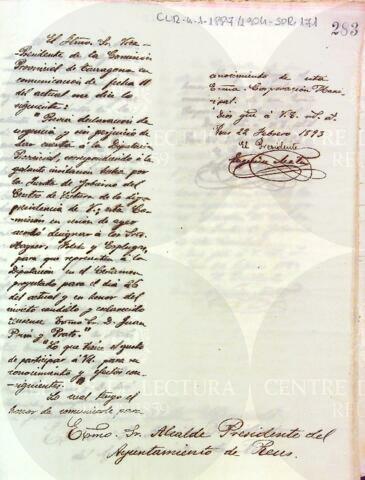 CLR-4-1-1887/1904-SDR/171
283
El Iltmo. Sr. Vice-
Presidente de la Comisión
Provincial de Tarragona en
comunicación de fecha 11
del actual me dice lo
siguiente:
"Previa declaración de
urgencia y sin perjuicio de
dar cuenta á la Diputación
Provincial, correspondiendo á la
galante invitacion hecha por
la Junta de Gobierno del
Centro de Lectura de la digna
presidencia de V; esta Co-
misión en sesión de ayer
acordó designar á los Sres.
y
para que representen á la
Diputación en el Certamen
proyectado para el dia 26
del actual y en honor del
invicto caudillo y esclarecido
reusense Excmo Sr. D. Juan
Prim y Prats."
"Lo que tiene el gusto
de participar á V. para su
conocimiento y efectos con-
siguientes."
Lo cual tengo el
honor de comunicarle para
conocimiento de esta
Excma. Corporación Muni-
cipal.
Dios gue á V.E. m. a.
Reus 22 Febrero 1893
El Presidente
Excmo. Sr. Alcalde Presidente del
Ayuntamiento de Reus.
CENTRE DE LECTURA
REUS 1859